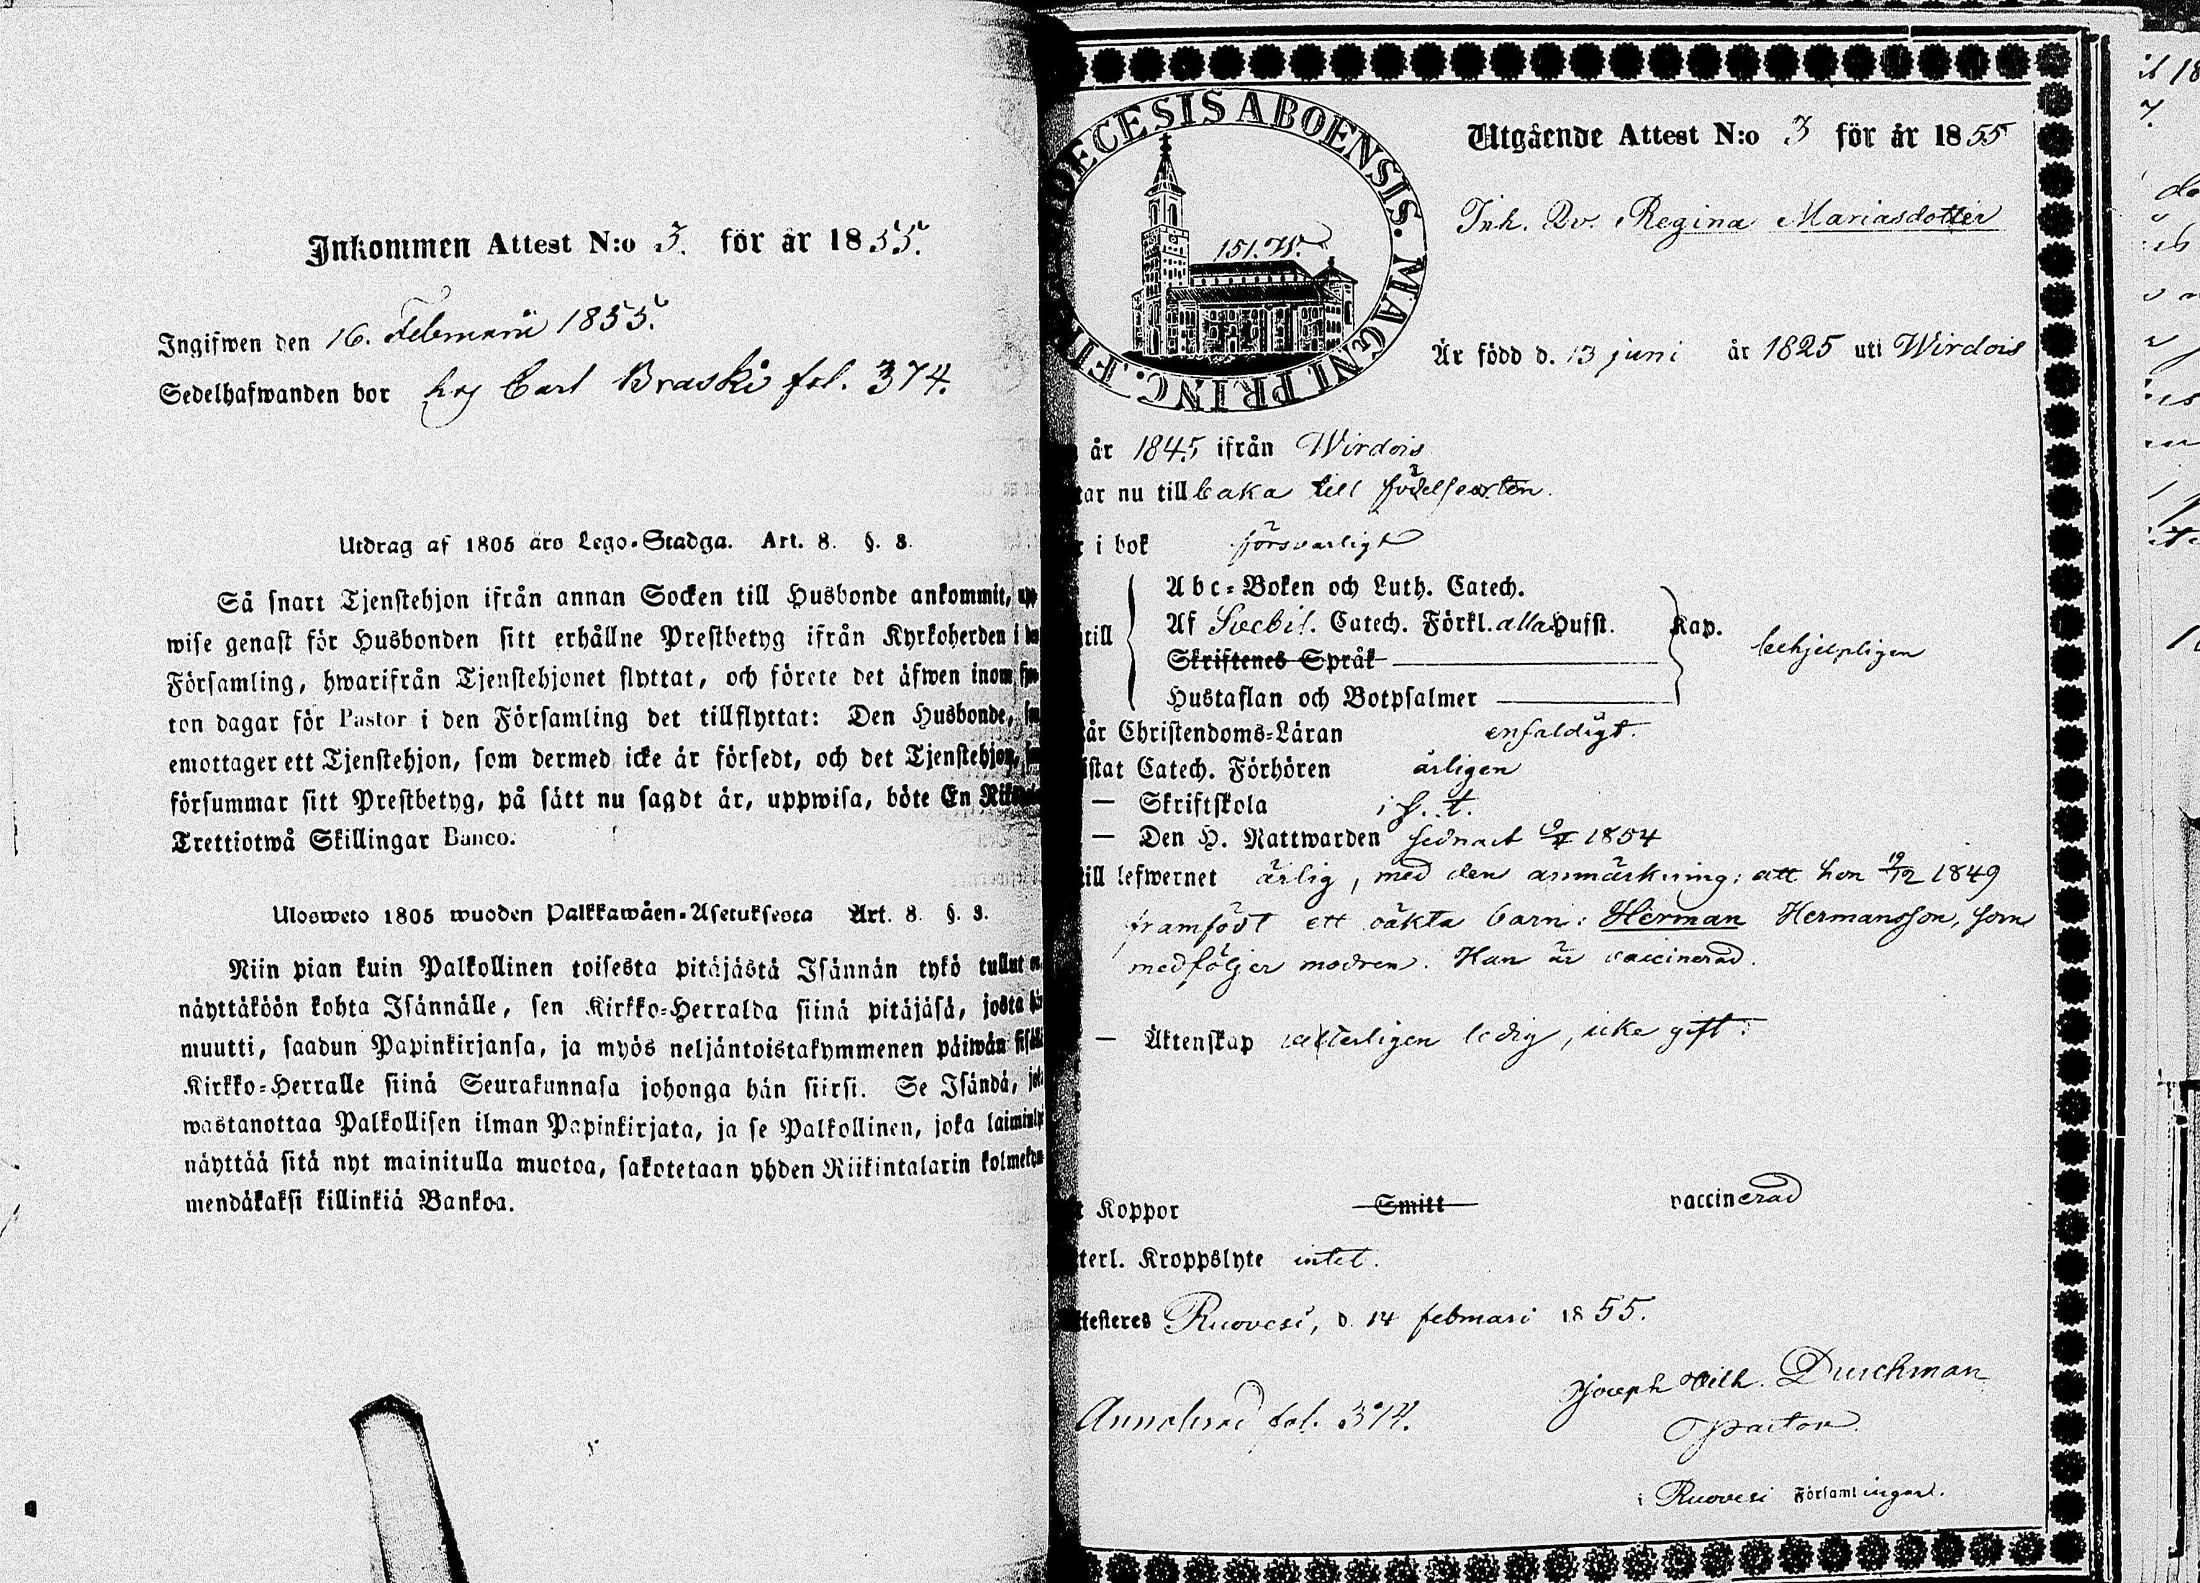 Inkommen Attest N:o 3. för år 1855.
Ingifwen den 16. Februarii 1855.
Sedelhafwanden bor hos Carl Braski fol. 374.
Utdrag af 1805 års Lego-Stadga. Art. 8. §. 3.
Så snart Tjenstehjon ifrån annan Socken till Husbonde ankommit, upp-
wise genast för Husbonden sitt erhållne Prestbetyg ifrån Kyrkoherden i den
Församling, hwarifrån Tjenstehjonet flyttat, och förete det äfwen inom fjor-
ton dagar för Pastor i den Församling det tillflyttat: Den Husbonde,
emottager ett Tjenstehjon, som dermed icke är försedt, och det Tjenstehjon,
försummar sitt Prestbetyg, på sätt nu sagdt är, uppwisa, böte En
Trettiotwå Skillingar Banco.
Ulosweto 1805 wuoden Palkkawäen-Asetuksesta Art. 8. §. 3.
Niin pian kuin Palkollinen toisesta pitäjästä Isännän tykö tullut
näyttäköön kohta Isännälle, sen Kirkko-Herralda siinä pitäjäsä, josta hän
muutti, saadun Papinkirjansa, ja myös neljäntoistakymmenen päiwän sisällä
Kirkko-Herralle siinä Seurakunnasa johonga hän siirsi. Se Isändä,
wastanottaa Palkollisen ilman Papinkirjata, ja se Palkollinen, joka
näyttää sitä nyt mainitulla muotoa, sakotetaan yhden Riikintalarin kolmekym-
mendäkaksi killinkiä Bankoa.
DECESIS ABOENSIS. MAGNI PRINC.
151. W.
Utgående Attest N:o 3 för år 1855
Inh. Qv. Regina Mariasdotter
Är född d. 13 juni år 1825 uti Wirdois
år 1845 ifrån Wirdois
tar nu tillbaka till födelseorten.
i bok försvarligt
Abc-Boken och Luth. Catech.
till Af Svebil. Catech. Förkl. alla Hufst. Kap. behjelpligen
Skriftenes Språk
Hustaflan och Botpsalmer
Christendoms-Läran enfaldigt.
Catech. Förhören årligen
— Skriftskola i s. t.
— Den H. Nattwarden sednast 1854
till lefwernet ärlig, med den anmärkning: att hon 19/12 1849
framfödt ett oäkta barn: Herman Hermansson, som
medföljer modren. Han är vaccinerad.
— Äktenskap ledig, icke gift.
Koppor Smitt vaccinerad
terl. Kroppslyte intet.
Ruovesi, d. 14 februari 1855.
Joseph Wilh. Durchman
Pastor.
Annoterad fol. 374.
i Ruovesi Församlingar.